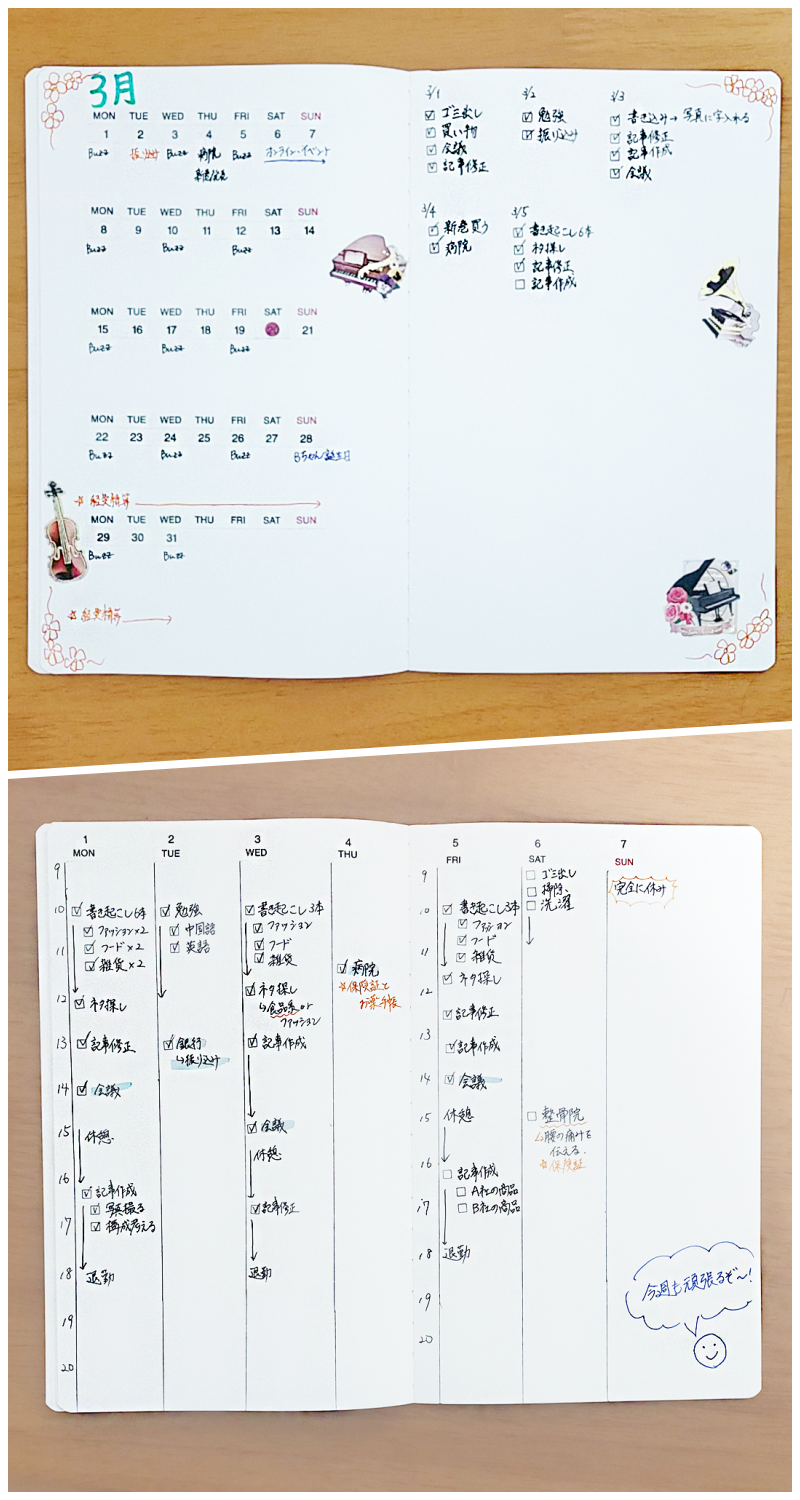 3月
MON TUE WED THU FRI SAT SUN
1 2 3 4 5 6 7
Buzz 振り込み Buzz 病院 Buzz オンライン・イベント
新巻発売
MON TUE WED THU FRI SAT SUN
8 9 10 11 12 13 14
Buzz Buzz Buzz
MON TUE WED THU FRI SAT SUN
15 16 17 18 19 20 21
Buzz Buzz Buzz
MON TUE WED THU FRI SAT SUN
22 23 24 25 26 27 28
Buzz Buzz Buzz Bちゃん誕生日
☆経費精算
MON TUE WED THU FRI SAT SUN
29 30 31
Buzz Buzz
☆経費精算
3/1
ゴミ出し
買い物
会議
記事修正
3/2
勉強
振り込み
3/3
書き込み→写真に字入れる
記事修正
記事作成
会議
3/4
新巻買う
病院
3/5
書き起こし6本
ネタ探し
記事修正
記事作成
1 2 3 4 5 6 7
MON TUE WED THU FRI SAT SUN
9
10
11
12
13
14
15
16
17
18
19
20
書き起こし6本
ファッション×2
フード×2
雑貨×2
ネタ探し
記事修正
会議
休憩
記事作成
写真撮る
構成考える
退勤
勉強
中国語
英語
銀行
↳振り込み
書き起こし3本
ファッション
フード
雑貨
ネタ探し
↳食品系or
ファッション
記事作成
会議
休憩
記事修正
退勤
病院
☆保険証と
お薬手帳
9
10
11
12
13
14
15
16
17
18
19
20
書き起こし3本
ファッション
フード
雑貨
ネタ探し
記事修正
記事作成
会議
休憩
記事作成
A社の商品
B社の商品
退勤
ゴミ出し
掃除
洗濯
整骨院
↳腰の痛みを
伝える。
☆保険証
完全に休み
今週も頑張るぞ〜!